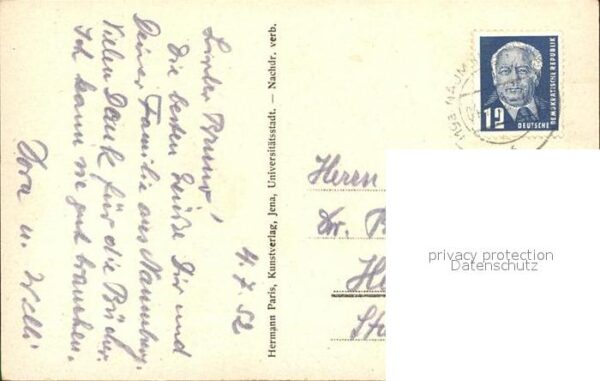 4.7.52
Lieber Bruno!
Die besten Grüße Dir und
Deiner Familie aus Naumburg.
Vielen Dank für die Bücher.
Ich kann sie gut brauchen.
Dora u. Willi
Hermann Paris, Kunstverlag, Jena, Universitätsstadt. — Nachdr. verb.
12
DEUTSCHE
DEMOKRATISCHE REPUBLIK
NAUM
Herrn
Dr. B
privacy protection
Datenschutz